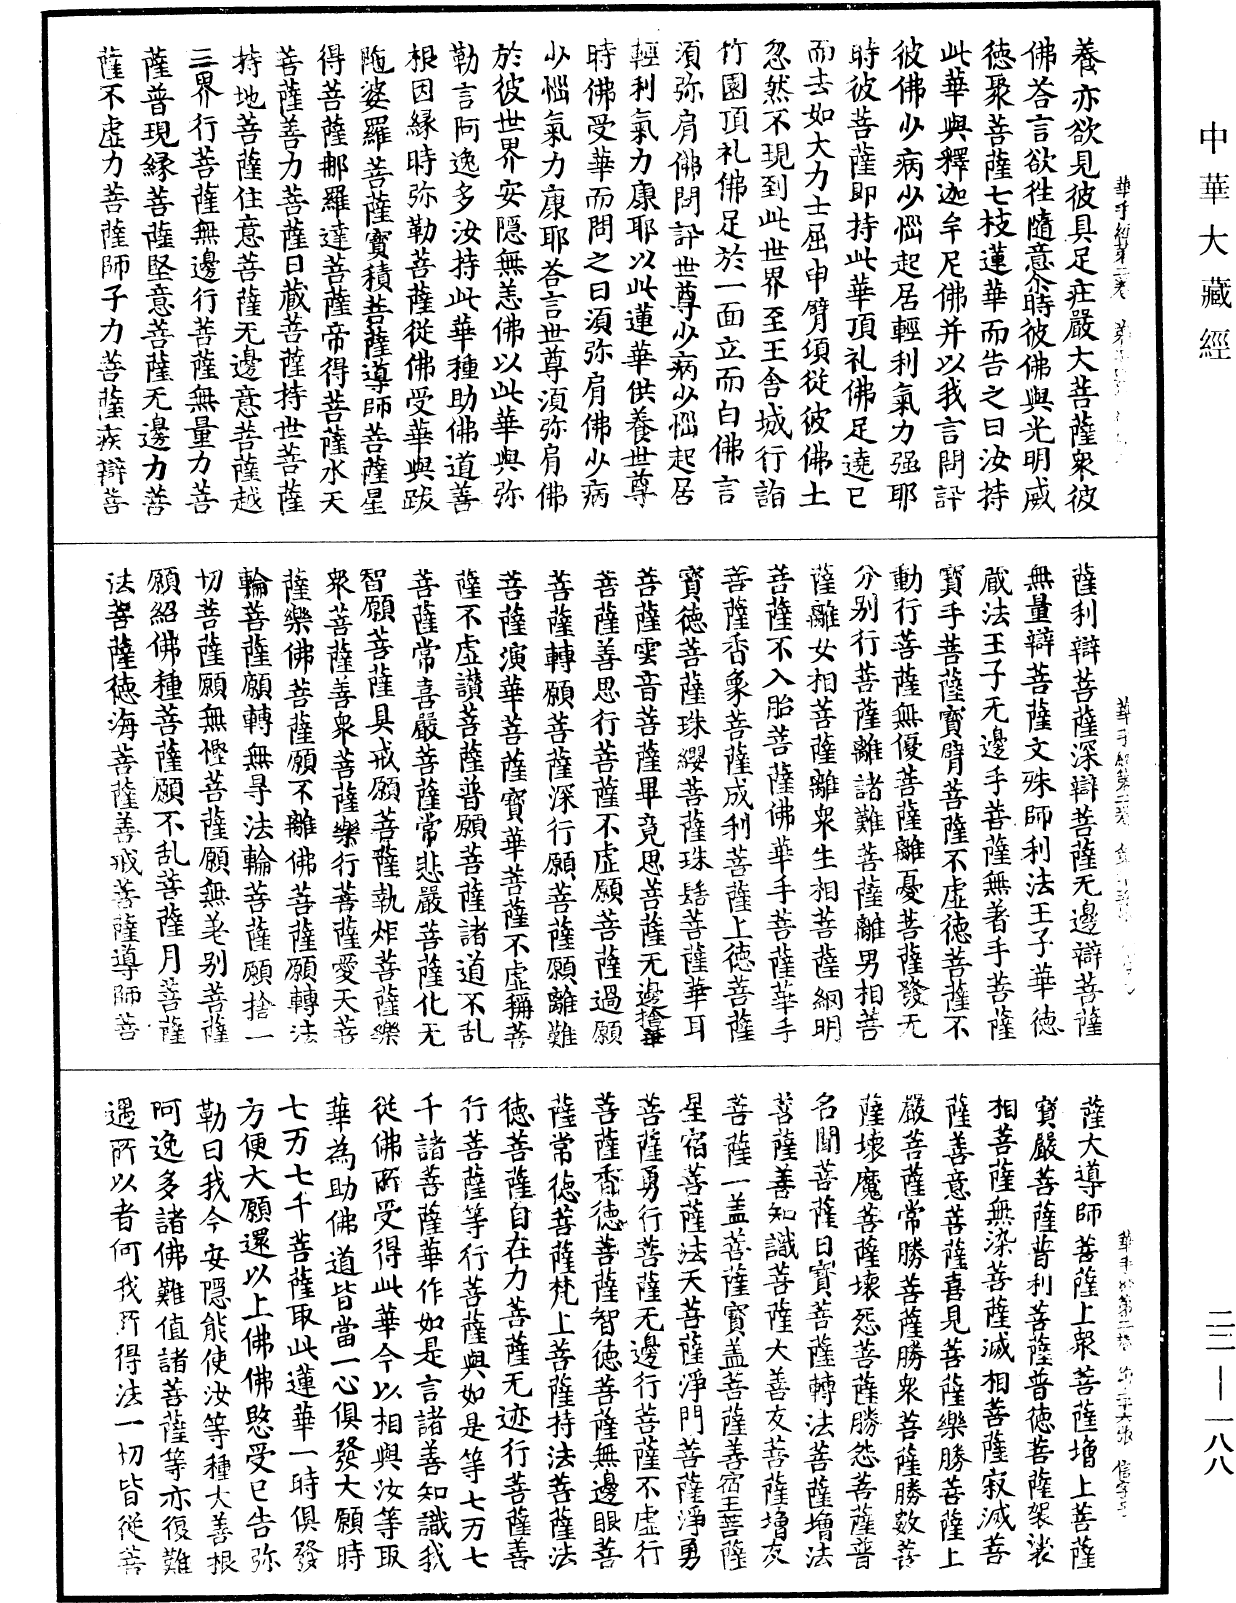 中華大藏經
養亦欲見彼具足庄嚴大菩薩衆彼
佛荅言欲往隨意尒時彼佛與光明威
德聚菩薩七枝蓮華而告之曰汝持
此華與釋迦牟尼佛并以我言問訊
彼佛少病少惱起居輕利氣力强耶
時彼菩薩即持此華頂礼佛足遶已
而去如大力士屈申臂頃従彼佛土
忽然不現到此世界至王舍城行詣
竹園頂礼佛足於一面立而白佛言
須弥肩佛問訊世尊少病少惱起居
輕利氣力康耶以此蓮華供養世尊
時佛受華而問之曰須弥肩佛少病
少惱氣力康耶荅言世尊須弥肩佛
於彼世界安隠無恙佛以此華與弥
勒言阿逸多汝持此華種助佛道善
根因縁時弥勒菩薩從佛受華與跋
陁婆羅菩薩寶積菩薩導師菩薩星
得菩薩那羅達菩薩帝得菩薩水天
菩薩善力菩薩日蔵菩薩持世菩薩
持地菩薩住意菩薩无邊意菩薩越
三界行菩薩無邊行菩薩無量力菩
薩普現縁菩薩堅意菩薩无邊力菩
薩不虚力菩薩師子力菩薩疾辯菩
薩利辯菩薩深辯菩薩无邊辯菩薩
無量辯菩薩文殊師利法王子華徳
蔵法王子无邊手菩薩無著手菩薩
寳手菩薩寳臂菩薩不虚徳菩薩不
動行菩薩無優菩薩離憂菩薩發无
分別行菩薩離諸難菩薩離男相菩
薩離女相菩薩離衆生相菩薩網明
菩薩不入胎菩薩佛華手菩薩華手
菩薩香象菩薩成利菩薩上徳菩薩
寳徳菩薩珠纓菩薩珠髻菩薩華耳
菩薩雲音菩薩畢竟思菩薩无邊捨華
菩薩善思行菩薩不虚願菩薩過願
菩薩轉願菩薩深行願菩薩願離難
菩薩演華菩薩寳華菩薩不虚稱菩
薩不虚讃菩薩普願菩薩諸道不乱
菩薩常喜嚴菩薩常悲嚴菩薩化无
智願菩薩具戒願菩薩執炬菩薩樂
衆菩薩善衆菩薩樂行菩薩愛天菩
薩樂佛菩薩願不離佛菩薩願轉法
輪菩薩願轉無㝵法輪菩薩願捨一
切菩薩願無慳菩薩願無差别菩薩
願紹佛種菩薩願不乱菩薩月菩薩
法菩薩徳海菩薩善戒菩薩導師菩
薩大導師菩薩上衆菩薩増上菩薩
寳嚴菩薩普利菩薩普徳菩薩袈裟
相菩薩無染菩薩滅相菩薩寂滅菩
薩善意菩薩喜見菩薩樂勝菩薩上
嚴菩薩常勝菩薩勝衆菩薩勝数菩
薩壊魔菩薩壊怨菩薩勝怨菩薩普
名聞菩薩日寳菩薩轉法菩薩増法
菩薩善知識菩薩大善友菩薩増友
菩薩一盖菩薩寳盖菩薩善宿王菩薩
星宿菩薩法天菩薩淨門菩薩淨勇
菩薩勇行菩薩无邊行菩薩不虚行
菩薩香徳菩薩智徳菩薩無邊眼菩
薩常徳菩薩梵上菩薩持法菩薩法
徳菩薩自在力菩薩无迹行菩薩善
行菩薩等行菩薩與如是等七万七
千諸菩薩華作如是言諸善知識我
従佛所受得此華今以相與汝等取
華為助佛道皆當一心俱發大願時
七万七千菩薩取此蓮華一時俱發
方便大願還以上佛佛愍受已告弥
勒曰我今安隠能使汝等種大善根
阿逸多諸佛難值諸菩薩等亦復難
遇所以者何我所得法一切皆従菩
二二—一八八